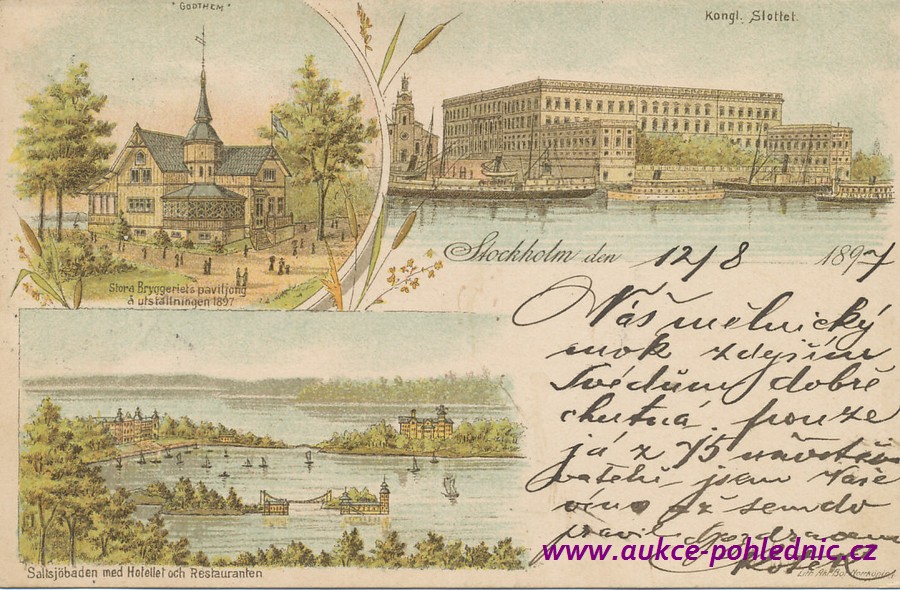 "GODTHEM"
Kongl. Slottet.
Stora Bryggeriets paviljong
å utställningen 1897
Stockholm den 12/8 1897
Náš mělnický
mok zdejším
Švédům dobře
chutná, pouze
já z 75 návštěv
vatelů jsem Vaše
víno až sem do
pravil.
Saltsjöbaden med Hotellet och Restauranten
www.aukce-pohlednic.cz